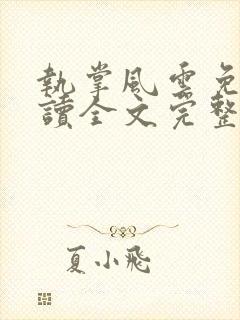 執掌風雲免
讀全文完整
夏小飛